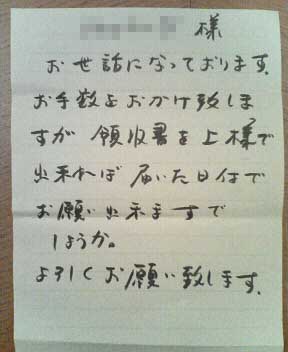 様
お世話になっております。
お手数をおかけ致しま
すが 領収書を上様で
出来れば 届いた日付で
お願い出来ますで
しょうか。
よろしくお願い致します。